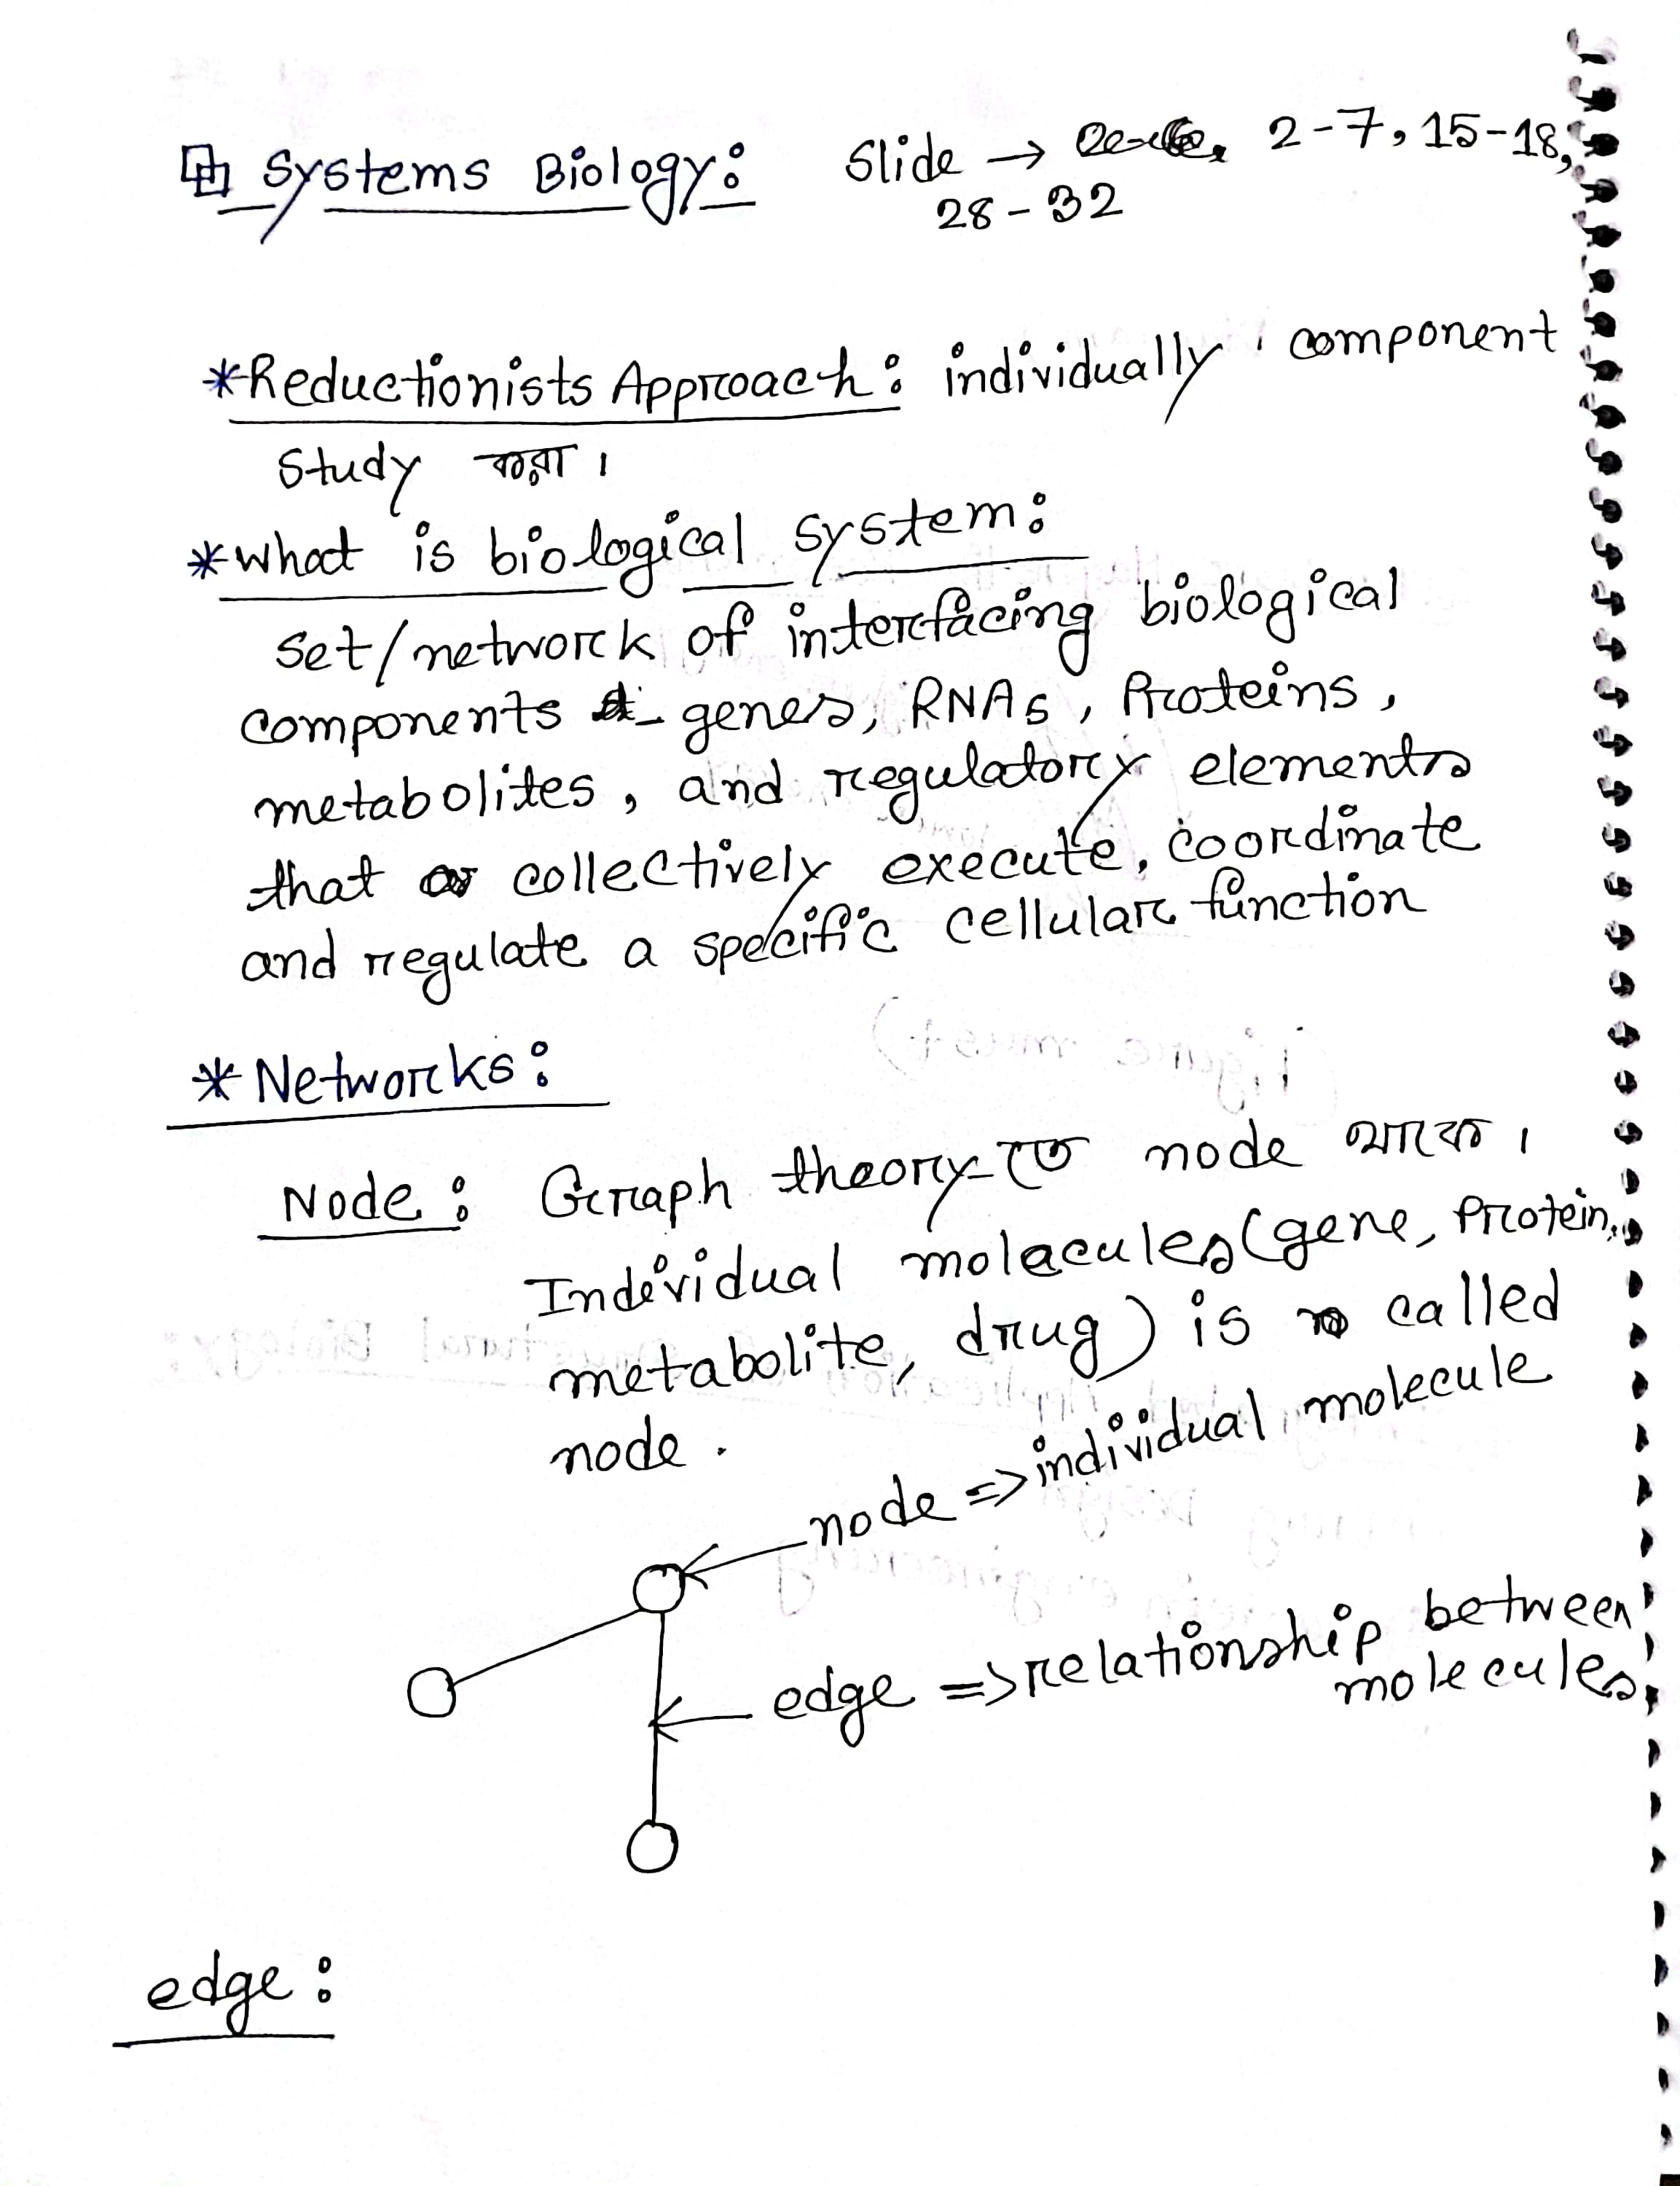 Systems Biology: Slide → 2-7, 15-18,
28-32
*Reductionists Approach: individually component
Study করা।
*what is biological system:
set/network of interfacing biological
components - genes, RNAs, Proteins,
metabolites, and regulatory elements
that collectively execute, coordinate
and regulate a specific cellular function
*Networks:
Node: Graph theory-তে node থাকে।
Individual molecules (gene, Protein,
metabolite, drug) is called
node.
node => individual molecule
edge => relationship between
molecules
edge: